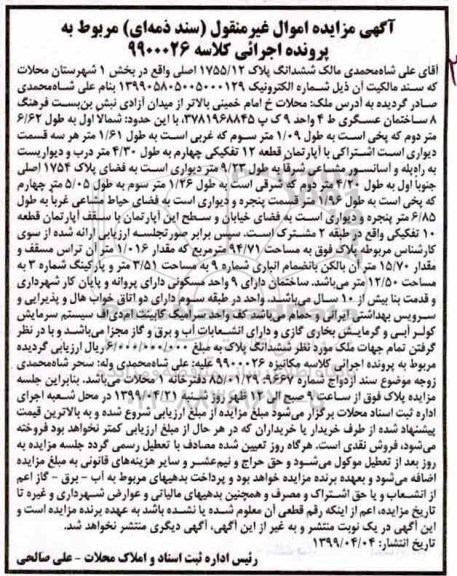 آگهی مزایده اموال غیرمنقول (سند ذمه‌ای) مربوط به
پرونده اجرائی کلاسه ۹۹۰۰۰۲۶
آقای علی شاه‌محمدی مالک ششدانگ پلاک ۱۷۵۵/۱۲ اصلی واقع در بخش ۱ شهرستان محلات
که سند مالکیت آن ذیل شماره الکترونیک ۱۳۹۹۰۵۸۰۵۰۰۵۰۰۰۱۲۹ بنام علی شاه‌محمدی
صادر گردیده به آدرس ملک: محلات خ امام خمینی بالاتر از میدان آزادی نبش بن‌بست فرهنگ
۸ ساختمان عسگری ط ۴ واحد ۹ ک پ ۳۷۸۱۹۶۸۸۴۵، با این حدود: شمالا اول به طول ۶/۶۲
متر دوم که پخی است به طول ۱/۰۹ متر سوم که غربی است به طول ۱/۶۱ متر هر سه قسمت
دیواری است اشتراکی با آپارتمان قطعه ۱۲ تفکیکی چهارم به طول ۴/۳۰ متر درب و دیواریست
به راه‌پله و آسانسور مشاعی شرقا به طول ۹/۲۳ متر دیواری است به فضای پلاک ۱۷۵۴ اصلی
جنوباً اول به طول ۴/۲۰ متر دوم که شرقی است به طول ۱/۲۶ متر سوم به طول ۵/۰۵ متر چهارم
که پخی است به طول ۱/۹۶ متر در چهار قسمت پنجره و دیواری است به فضای حیاط مشاعی غربا به طول
۶/۸۵ متر پنجره و دیواری است به فضای خیابان و سطح این آپارتمان با سقف آپارتمان قطعه
۱۰ تفکیکی واقع در طبقه ۲ مشترک است. سپس برابر صورتجلسه ارزیابی ارائه شده از سوی
کارشناس مربوطه پلاک فوق به مساحت ۹۴/۷۱ مترمربع که مقدار ۱/۰۱۶ متر آن تراس مسقف و
مقدار ۱۵/۷۰ متر آن بالکن بانضمام انباری شماره ۹ به مساحت ۳/۵۱ متر و پارکینگ شماره ۳ به
مساحت ۱۲/۵۰ متر می‌باشد. ساختمان دارای ۹ واحد مسکونی دارای پروانه و پایان کار شهرداری
و قدمت بنا بیش از ۱۰ سال می‌باشند. واحد در طبقه سوم دارای دو اتاق خواب هال و پذیرایی و
سرویس بهداشتی ایرانی و حمام می‌باشد کف واحد سرامیک کابینت ام‌دی‌اف سیستم سرمایش
کولر آبی و گرمایش بخاری گازی و دارای انشعابات آب و برق و گاز مجزا می‌باشد و با در نظر
گرفتن تمام جهات ملک مورد نظر ششدانگ پلاک به مبلغ ۶/۰۰۰/۰۰۰/۰۰۰ ریال ارزیابی گردیده
مربوط به پرونده اجرائی کلاسه مکانیزه ۹۹۰۰۰۲۶ علیه: علی شاه‌محمدی وله: سحر شاه‌محمدی
زوجه موضوع سند ازدواج شماره ۹۶۶۷: ۸۵/۰۱/۲۹ دفترخانه ۱ محلات می‌باشد. بنابراین جلسه
مزایده پلاک فوق از ساعت ۹ صبح الی ۱۲ ظهر روز شنبه ۱۳۹۹/۰۴/۲۱ در محل شعبه اجرای
اداره ثبت اسناد محلات برگزار می‌شود مبلغ مزایده از مبلغ ارزیابی شروع شده و به بالاترین قیمت
پیشنهاد شده از طرف خریدار یا خریداران که در هر حال از مبلغ ارزیابی کمتر نخواهد بود فروخته
می‌شود، فروش نقدی است. هرگاه روز تعیین شده مصادف با تعطیل رسمی گردد جلسه مزایده به
روز بعد از تعطیل موکول می‌شود و حق حراج و نیم‌عشر و سایر هزینه‌های قانونی به مبلغ مزایده
اضافه می‌شود و بعهده برنده مزایده خواهد بود و پرداخت بدهیهای مربوط به آب - برق - گاز اعم
از انشعاب و یا حق اشتراک و مصرف و همچنین بدهیهای مالیاتی و عوارض شهرداری و غیره تا
تاریخ مزایده، اعم از اینکه رقم قطعی آن معلوم شده یا نشده باشد به عهده برنده مزایده است و
این آگهی در یک نوبت منتشر و به غیر از این آگهی، آگهی دیگری منتشر نخواهد شد.
تاریخ انتشار: ۱۳۹۹/۰۴/۰۴
رئیس اداره ثبت اسناد و املاک محلات - علی صالحی